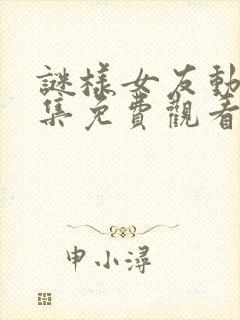 謎樣女友動
集免費觀看
申小潯